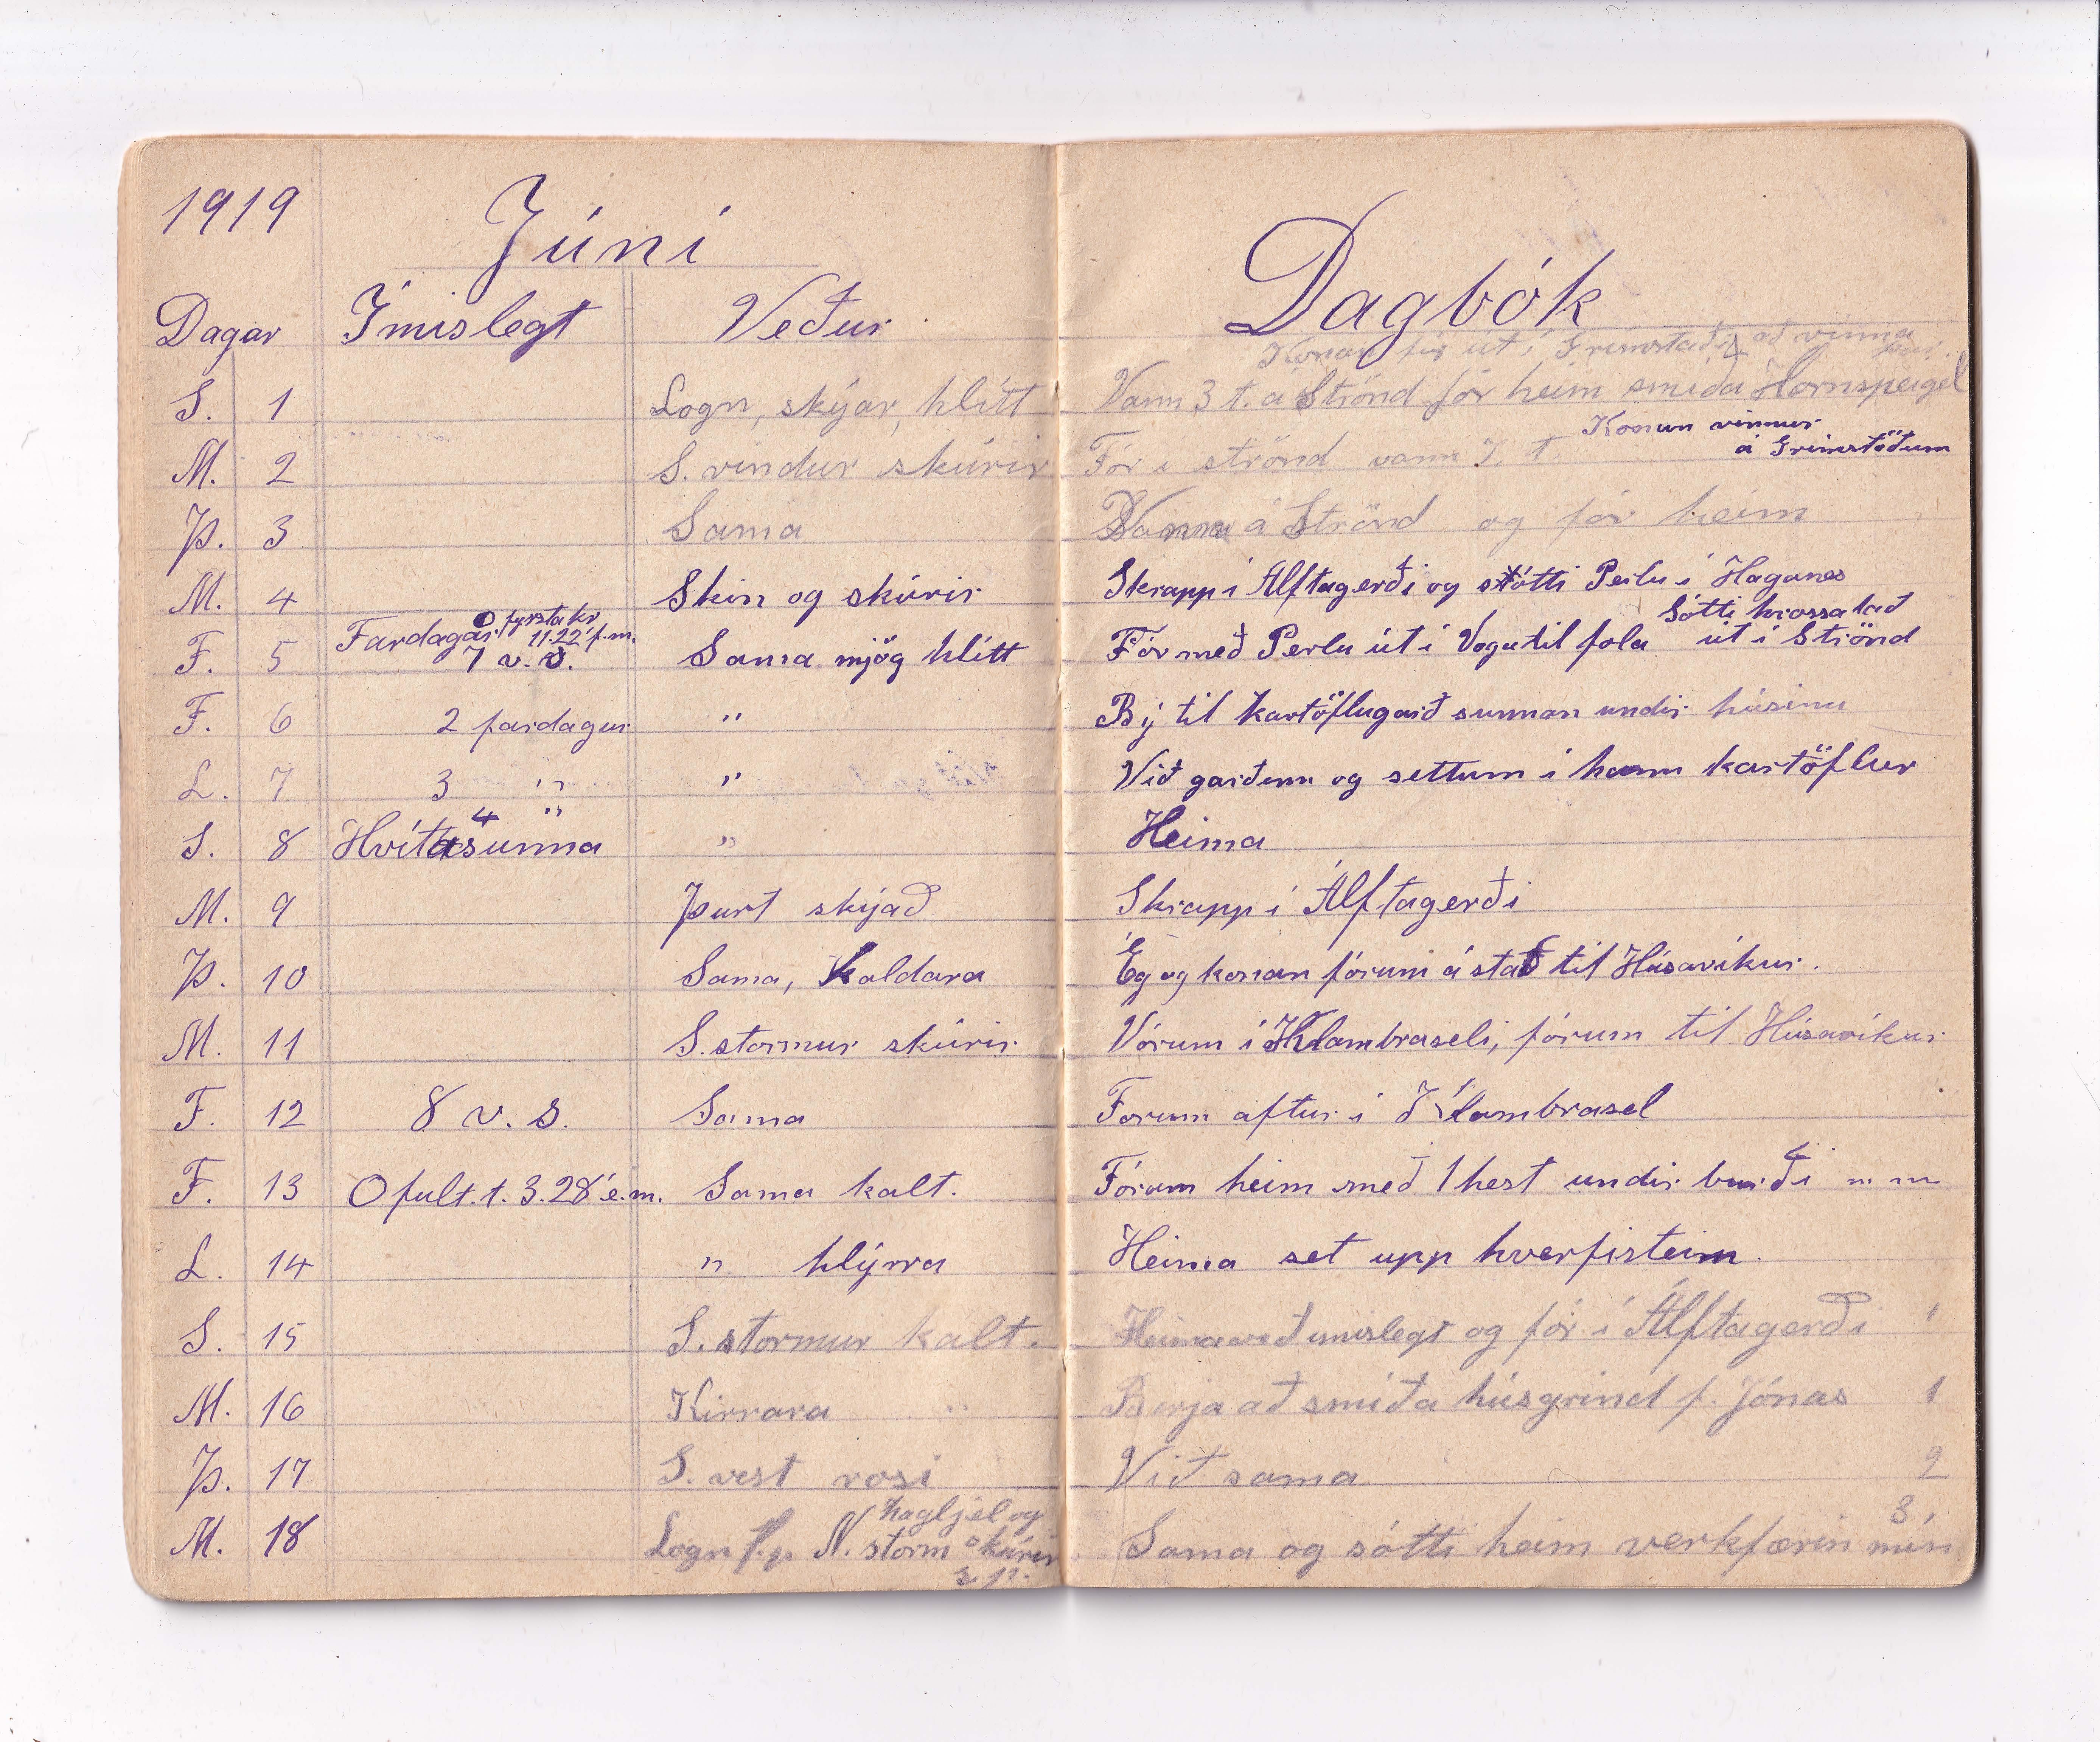 1919
Júní
Dagbók
Dagar Ímislegt Veður
Konan fór út í Grímstaði að vinna
S. 1 Logn, skýar, hlítt Vann 3 t. á Strönd fór heim smíða Hornspeigel
Konan vinnur
á Grímstöðum
M. 2 S. vindur skúrir Fór í strönd vann 7. t.
Þ. 3 Sama Vann á Strönd og fór heim
M. 4 Skin og skúrir Skrapp í Álftagerði og sótti Perlu í Haganes
fyrsta kv.
11.22 f.m.
Sótti hrossatað
F. 5 Fardagar 7 v. s. Sama mjög hlítt Fór með Perlu út í Voga til fola út í Strönd
F. 6 2 fardagur " Bý til kartöflugarð sunnan undir húsinu
L. 7 3 " " Við garðinn og settum í hann kartöflur
4 "
S. 8 Hvítasunna " Heima
M. 9 Þurt skýað Skrapp í Álftagerði
Þ. 10 Sama, kaldara Ég og konan fórum á stað til Húsavíkur.
M. 11 S. stormur skúrir Vórum í Klambraseli, fórum til Húsavíkur
F. 12 8 v. s. Sama Forum aftur í Klambrasel
F. 13 O fult. t. 3.28' e.m. Sama kalt. Fórum heim með 1 hest undir burði m m
L. 14 " hlýrra Heima set upp hverfistein.
S. 15 S. stormur kalt. Heima við imislegt og fór í Álftagerði 1
M. 16 Kirrara " Berja að smíða húsgrind f. Jónas 1
Þ. 17 S. vest rosi Við sama 2
hagljel og
3
M. 18 Logn f.p. N. storm skúrir Sama og sótti heim verkfærin mín
s. p.